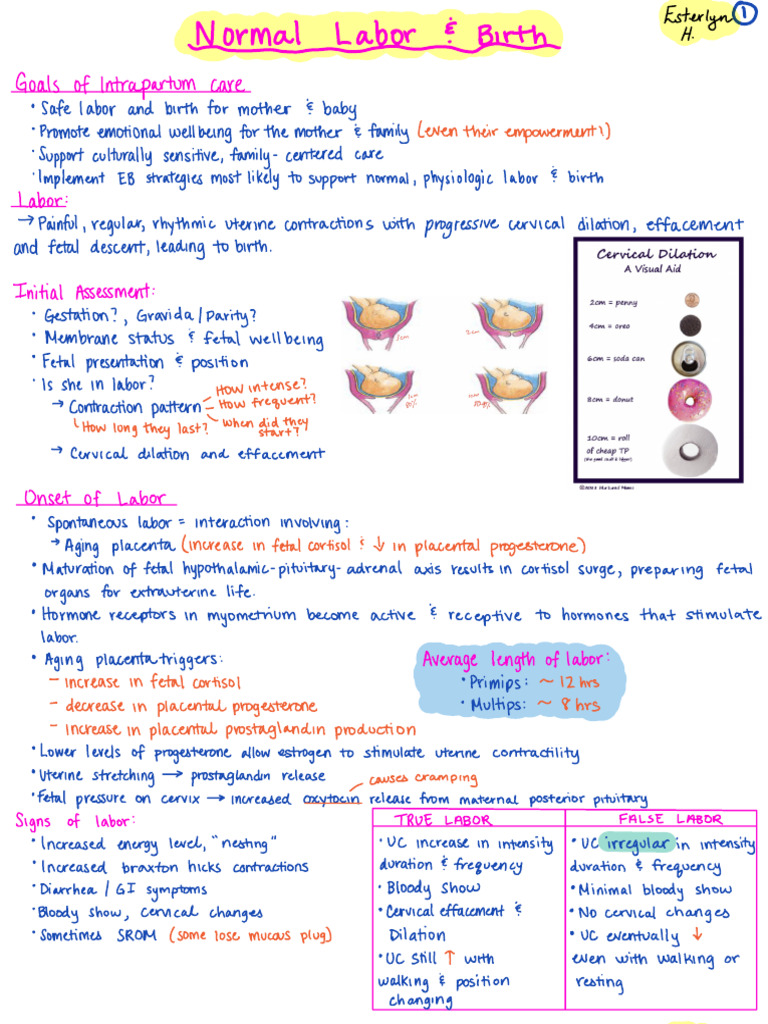 Normal Labor & Birth
Esterlyn H.
1
Goals of Intrapartum care
• Safe labor and birth for mother & baby
• Promote emotional wellbeing for the mother & family (even their empowerment!)
• Support culturally sensitive, family-centered care
• Implement EB strategies most likely to support normal, physiologic labor & birth
Labor:
→ Painful, regular, rhythmic uterine contractions with progressive cervical dilation, effacement
and fetal descent, leading to birth.
Initial Assessment:
• Gestation?, Gravida/Parity?
• Membrane status & fetal wellbeing
• Fetal presentation & position
• Is she in labor?
→ Contraction pattern
How intense?
How frequent?
When did they start?
How long they last?
→ Cervical dilation and effacement
Cervical Dilation
A Visual Aid
2cm = penny
4cm = oreo
6cm = soda can
8cm = donut
10cm = roll
of cheap TP
Onset of Labor
• Spontaneous labor = interaction involving:
→ Aging placenta (increase in fetal cortisol & ↓ in placental progesterone)
• Maturation of fetal hypothalamic-pituitary-adrenal axis results in cortisol surge, preparing fetal
organs for extrauterine life.
• Hormone receptors in myometrium become active & receptive to hormones that stimulate
labor.
• Aging placenta triggers:
– increase in fetal cortisol
– decrease in placental progesterone
– increase in placental prostaglandin production
Average length of labor:
• Primips: ~ 12 hrs
• Multips: ~ 8 hrs
• Lower levels of progesterone allow estrogen to stimulate uterine contractility
• Uterine stretching → prostaglandin release
causes cramping
• Fetal pressure on cervix → increased oxytocin release from maternal posterior pituitary
Signs of labor:
• Increased energy level, "nesting"
• Increased braxton hicks contractions
• Diarrhea / GI symptoms
• Bloody show, cervical changes
• Sometimes SROM (some lose mucous plug)
TRUE LABOR
• UC increase in intensity
duration & frequency
• Bloody Show
• Cervical effacement &
Dilation
• UC Still ↑ with
walking & position
changing
FALSE LABOR
• UC irregular in intensity
duration & frequency
• Minimal bloody show
• No cervical changes
• UC eventually ↓
even with walking or
resting